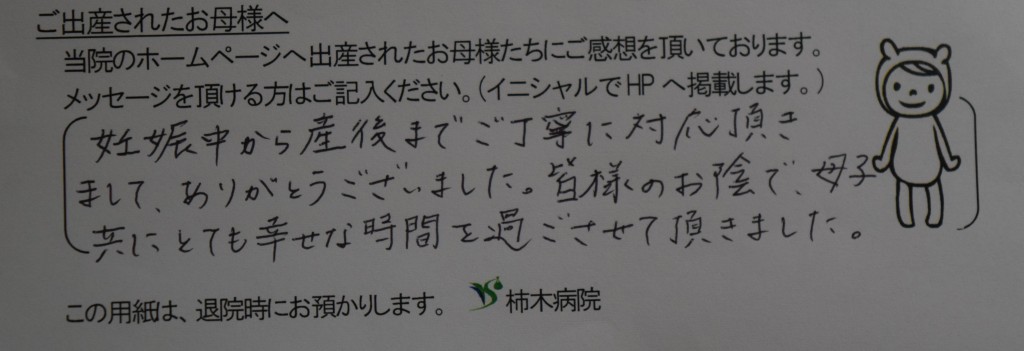 ご出産されたお母様へ
当院のホームページへ出産されたお母様たちにご感想を頂いております。
メッセージを頂ける方はご記入ください。(イニシャルでHPへ掲載します。)
妊娠中から産後までご丁寧に対応頂き
まして、ありがとうございました。皆様のお陰で、母子
共にとても幸せな時間を過ごさせて頂きました。
この用紙は、退院時にお預かりします。 柿木病院